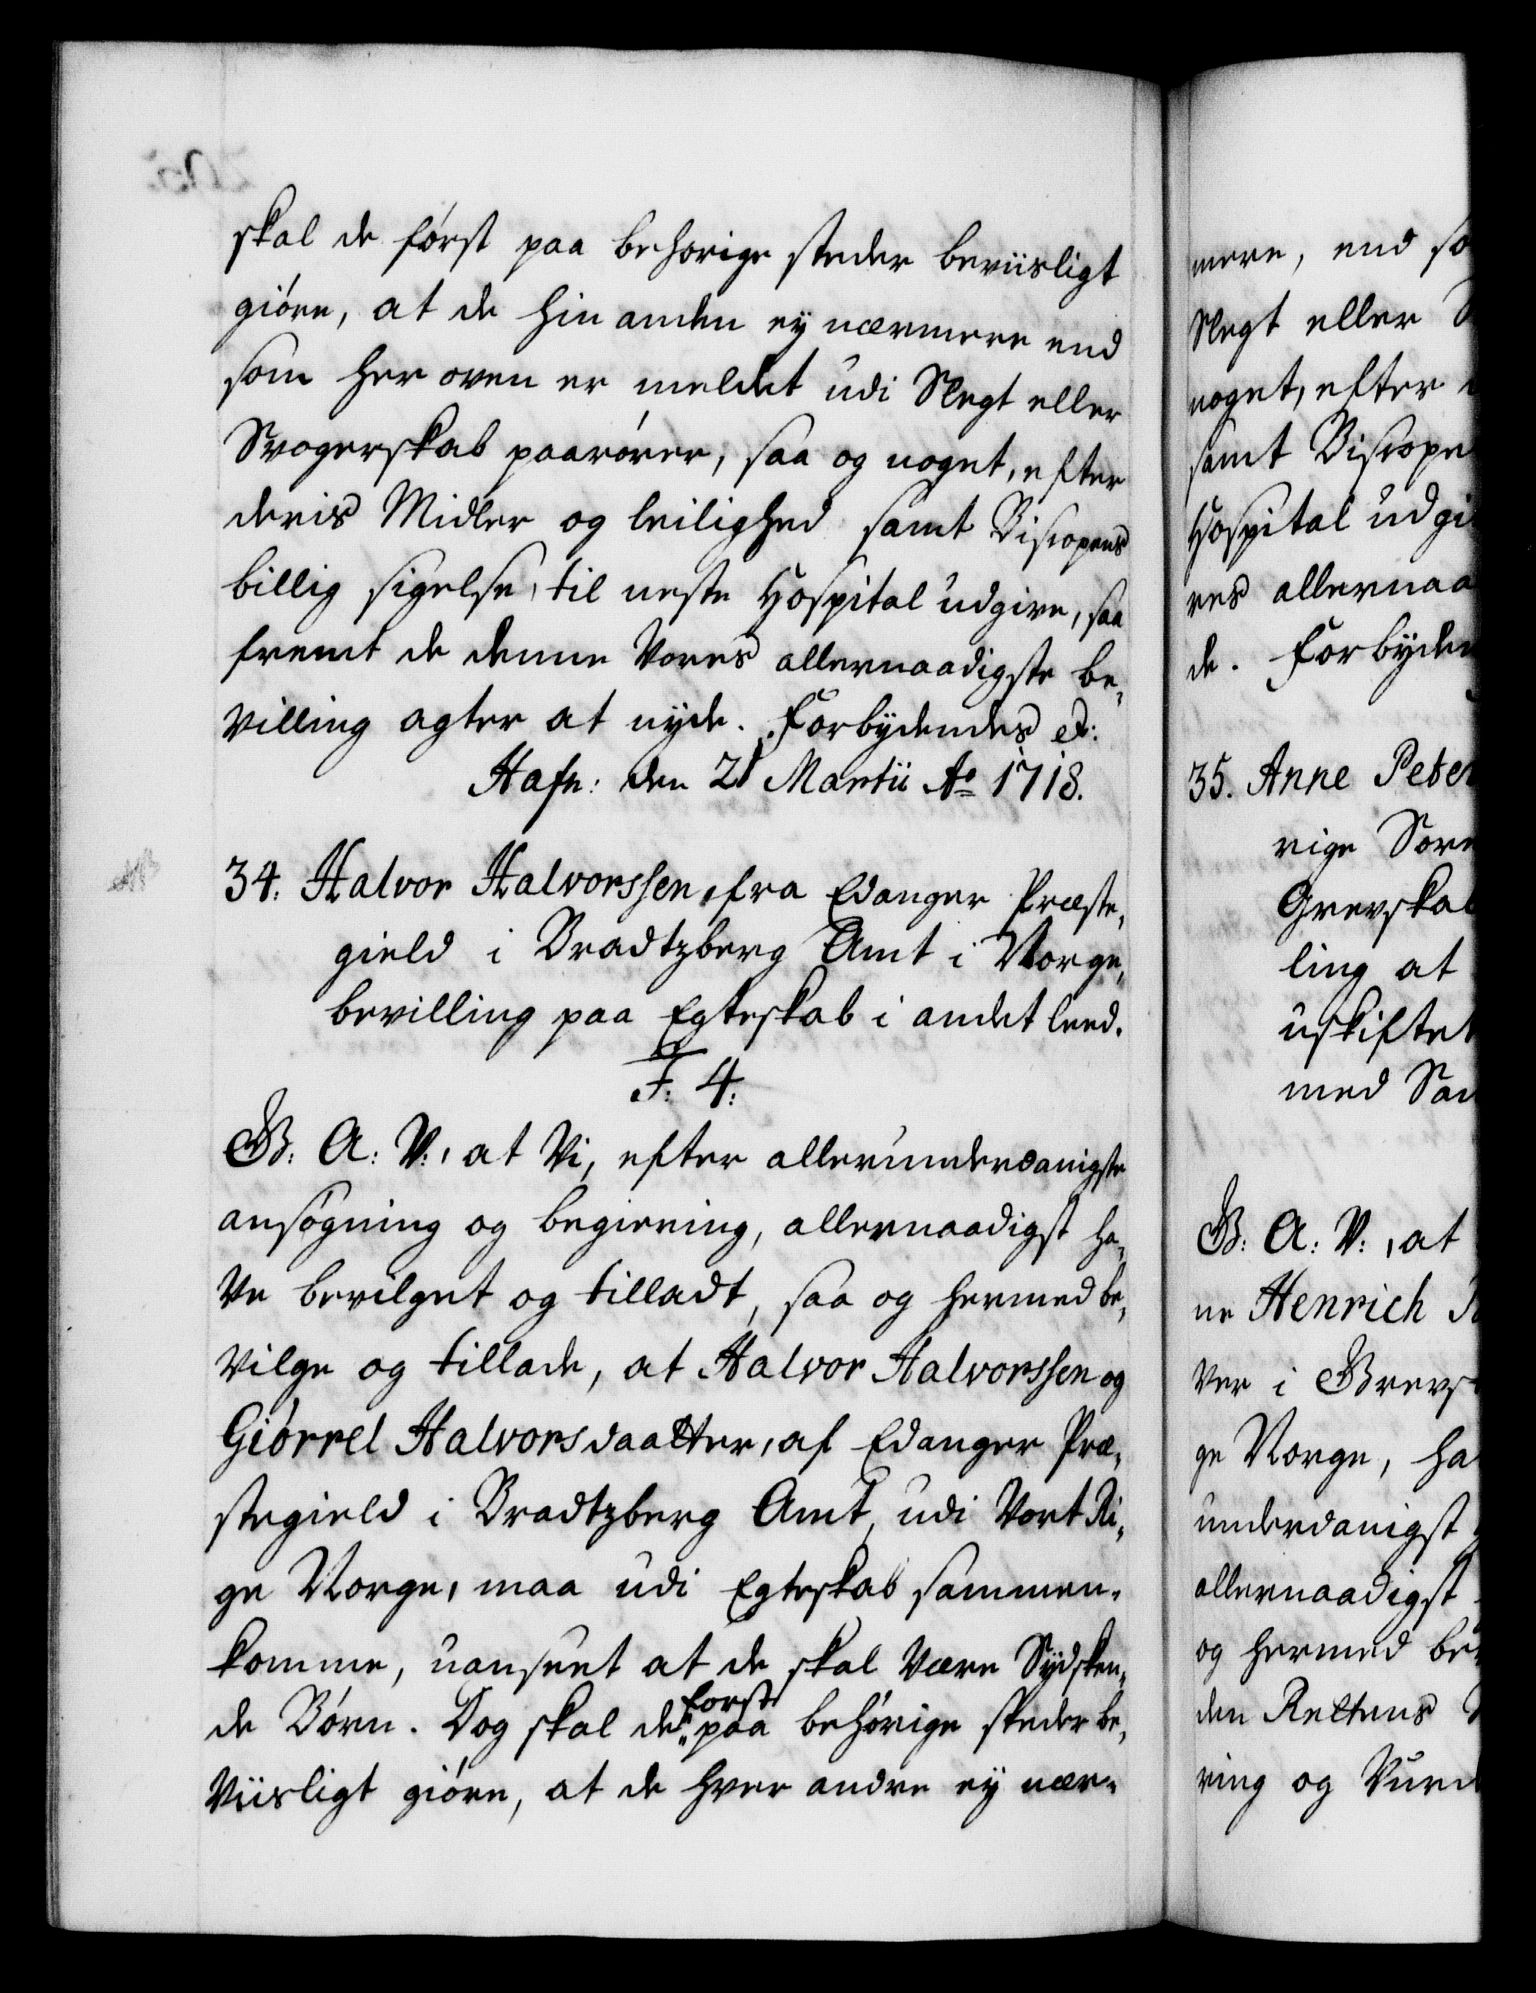 skal de først paa behørige steder beviisligt
giøre, at de hin anden ey nærmere end
som her oven er meldet udi Slegt eller
Svogerskab paarører, saa og noget, efter
deris Midler og leilighed samt Biscopens
billig sigelse, til neste Hospital udgive, saa
fremt de denne Vores allernaadigste be-
villing agter at nyde. Forbydendes etc:
Hafn: den 21 Martii Ao 1718.
34. Halvor Halvorssen, fra Edanger Præste-
gield i Bradtzberg Amt i Norge,
bevilling paa Egteskab i andet leed.
F: 4.
G: A: V:, at Vi, efter allerunderdanigste
ansøgning og begiering, allernaadigst ha-
ve bevilget og tilladt, saa og hermed be-
vilge og tillade, at Halvor Halvorssen og
Giørrel Halvorsdaatter, af Edanger Præ-
stegield i Bradtzberg Amt, udi Vort Ri-
ge Norge, maa udi Egteskab sammen-
komme, uanseet at de skal være Sydsken-
først
de Børn. Dog skal de paa behørige steder be-
viisligt giøre, at de hver andre ey nær-
mere, end so
Slegt eller
noget, efter
samt Biscope
Hospital udgi
res allernaa
de. Forbyden
35. Anne Peter
rige Sore
Grevskab
ling at
uskiftet
med Sam
G: A: V:, at
ne Henrich
ver i Grevs
ge Norge, ha
underdanigst
allernaadigst
og hermed be
den Rettens
ring og Vurd